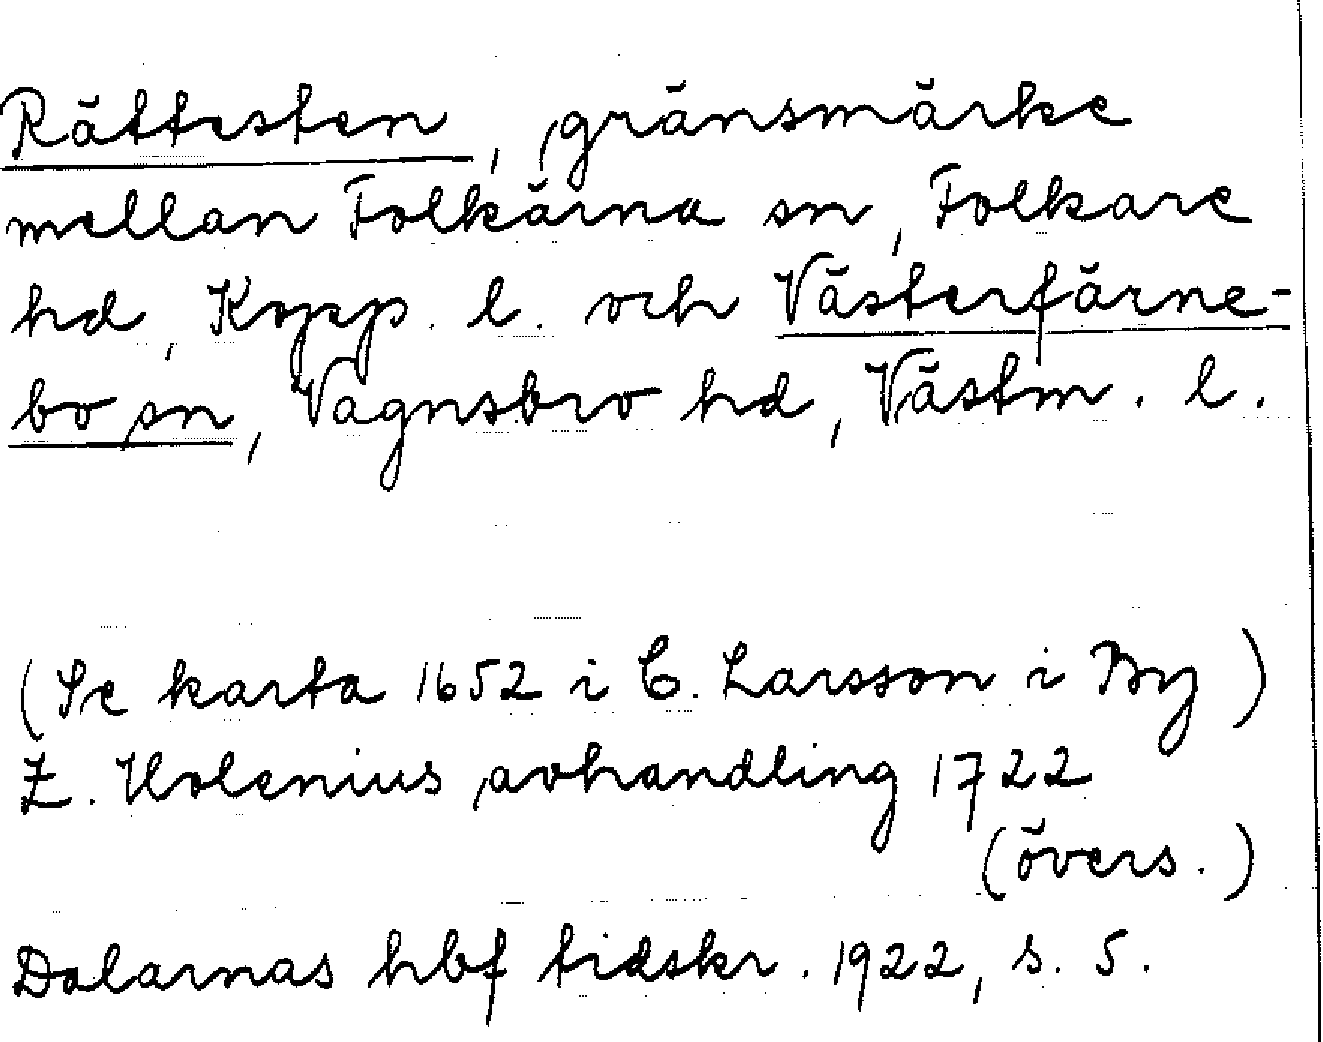 Rättesten, gränsmärke
mellan Folkärna sn, Folkare
hd, Kopp. l. och Västerfärne-
bo sn, Vagnsbro hd, Västm. l.
(Se karta 1652 i C. Larsson i By)
Z. Holenius avhandling 1722
(övers.)
Dalarnas hbf tidskr. 1922, s. 5.